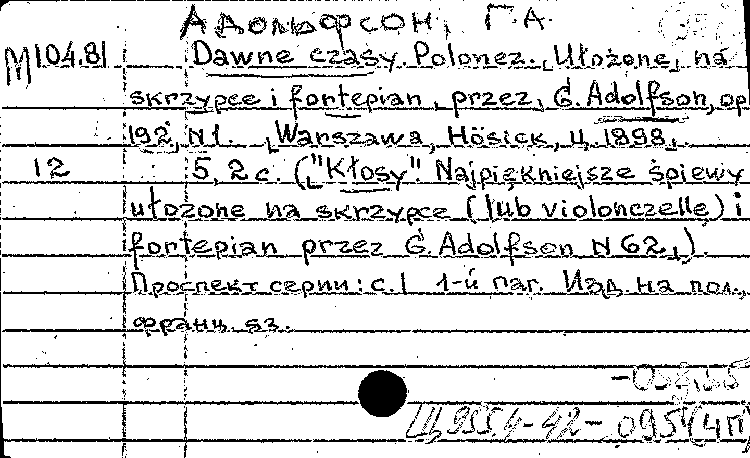 Адольфсон, Г.А.
М104.81 Dawne czasy. Polonez. Ułożone, na
skrzypce i fortepian, przez, G. Adolfson, op
192, N1. Warszawa, Hösick, ц. 1898.
12 5, 2 с. ("Kłosy". Najpiękniejsze śpiewy
ułożone na skrzypce (lub violonczellę) i
fortepian przez G. Adolfson N 62).
Проспект серии: с.1 1-й паг. Изд. на пол.,
франц. яз.